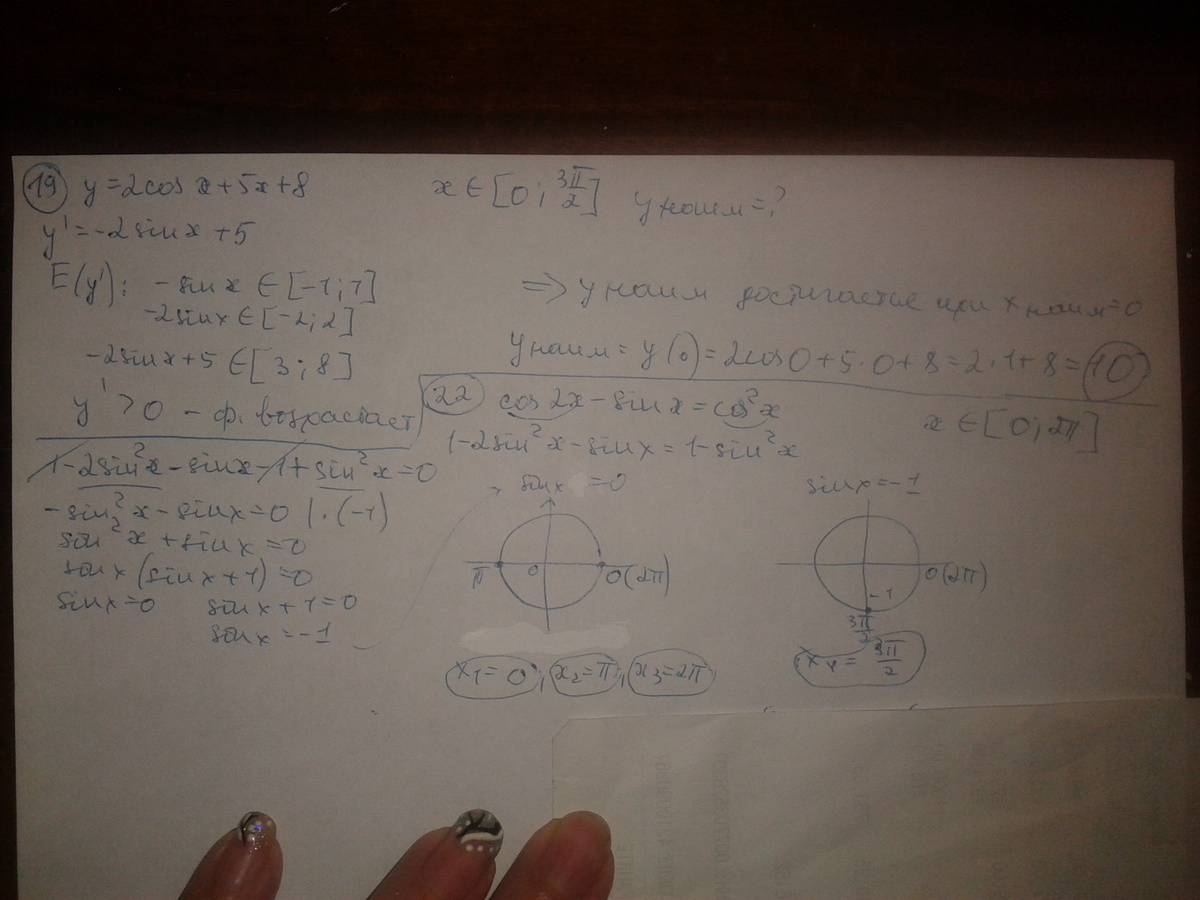 19 y = 2cos x + 5x + 8 x ∈ [0; 3π/2] y наим = ?
y' = -2sinx + 5
E(y'): -sinx ∈ [-1; 1]
-2sinx ∈ [-2; 2]
-2sinx + 5 ∈ [3; 8]
y' > 0 - ф. возрастает
⇒ y наим достигается при x наим = 0
y наим = y(0) = 2cos0 + 5·0 + 8 = 2·1 + 8 = 10
22 cos2x - sinx = cos²x x ∈ [0; 2π]
1 - 2sin²x - sinx = 1 - sin²x
1 - 2sin²x - sinx - 1 + sin²x = 0
-sin²x - sinx = 0 | · (-1)
sin²x + sinx = 0
sinx (sinx + 1) = 0
sinx = 0 sinx + 1 = 0
sinx = -1
sinx = 0
π 0 0(2π)
x₁ = 0, x₂ = π, x₃ = 2π
sinx = -1
0(2π)
-1
3π/2
x₄ = 3π/2